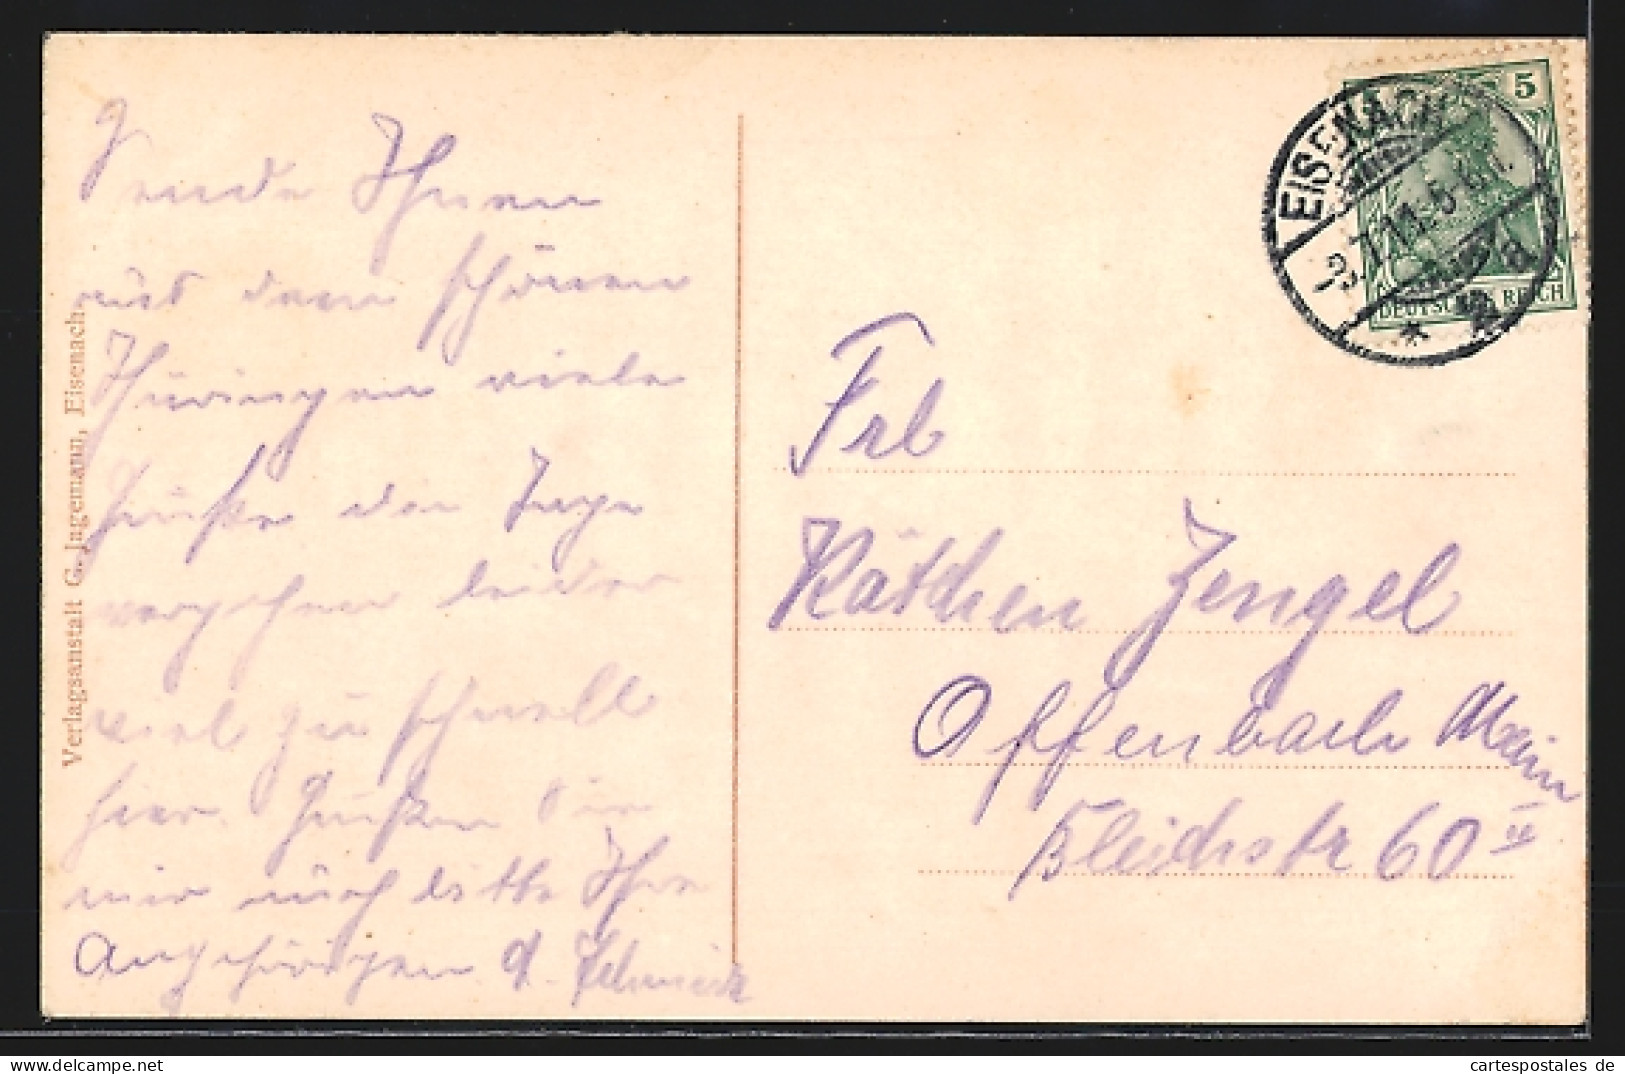 Sende Ihnen
aus dem schönen
Thüringen viele
Grüße die Tage
vergehen leider
viel zu schnell
hier. Grüßen Sie
mir auch bitte Ihre
Angehörigen
Verlagsanstalt G. Jagemann, Eisenach.
EISENACH
5
DEUTSCHES REICH
Frl
Käthchen Zengel
Offenbach Main
Bleichstr 60 II
cartespostales de